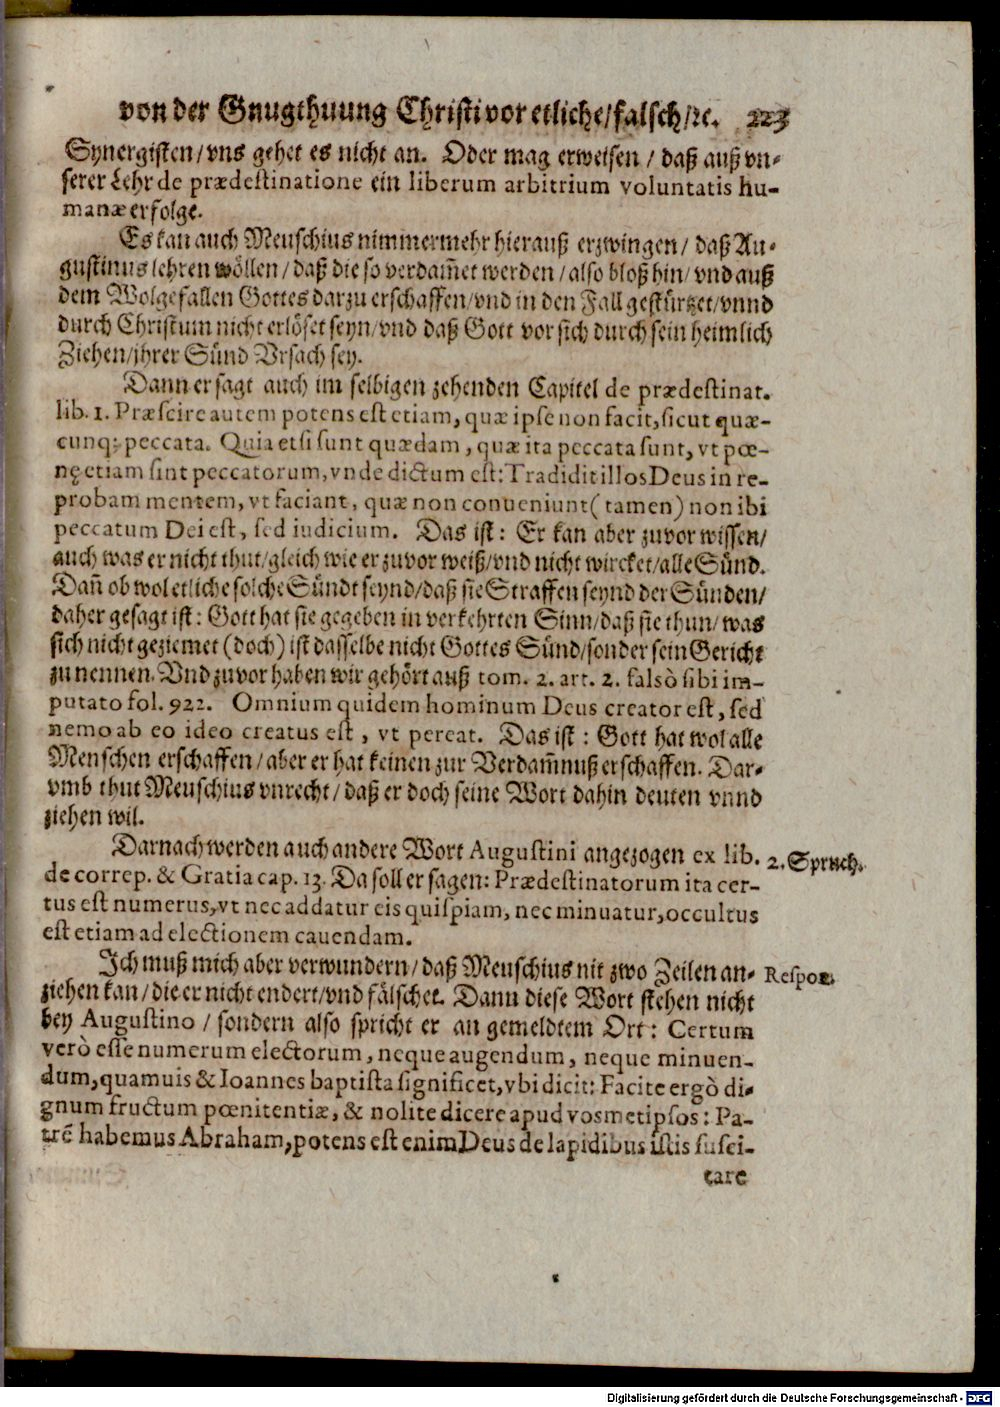 von der Gnugthuung Christi vor etliche/falsch/ꝛc. 223
Synergisten/vns gehet es nicht an. Oder mag erweisen / daß auß vn-
serer Lehr de prædestinatione ein liberum arbitrium voluntatis hu-
manæ erfolge.
Es kan auch Meuschius nimmermehr hierauß erzwingen/ daß Au-
gustinus lehren wöllen/daß die so verdam̃et werden/also bloß hin/ vnd auß
dem Wolgefallen Gottes darzu erschaffen/vnd in den Fall gestürtzet/vnnd
durch Christum nicht erlöset seyn/vnd daß Gott vor sich durch sein heimlich
Ziehen/jhrer Sünd Vrsach sey.
Dann er sagt auch im selbigen zehenden Capitel de prædestinat.
lib. 1. Præscire autem potens est etiam, quæ ipse non facit, sicut quæ-
cunq; peccata. Quia etsi sunt quædam, quæ ita peccata sunt, vt pœ-
nę etiam sint peccatorum, vnde dictum est: Tradidit illos Deus in re-
probam mentem, vt faciant, quæ non conueniunt( tamen) non ibi
peccatum Dei est, sed iudicium. Das ist: Er kan aber zuvor wissen/
auch was er nicht thut/gleich wie er zuvor weiß/vnd nicht wircket/alle Sünd.
Dañ ob wol etliche solche Sündt seynd/daß sie Straffen seynd der Sünden/
daher gesagt ist: Gott hat sie gegeben in verkehrten Sinn/daß sie thun/was
sich nicht geziemet (doch) ist dasselbe nicht Gottes Sünd/sonder sein Gericht
zu nennen. Vnd zuvor haben wir gehört auß tom. 2. art. 2. falsò sibi im-
putato fol. 922. Omnium quidem hominum Deus creator est, sed
nemo ab eo ideo creatus est, vt pereat. Das ist: Gott hat wol alle
Menschen erschaffen/aber er hat keinen zur Verdam̃nuß erschaffen. Dar-
vmb thut Meuschius vnrecht/daß er doch seine Wort dahin deuten vnnd
ziehen wil.
Darnach werden auch andere Wort Augustini angezogen ex lib.
2. Spruch.
de correp. & Gratia cap. 13. Da soll er sagen: Prædestinatorum ita cer-
tus est numerus, vt nec addatur eis quispiam, nec minuatur, occultus
est etiam ad electionem cauendam.
Ich muß mich aber verwundern/daß Meuschius nit zwo Zeilen an-
Respoz.
ziehen kan/die er nicht endert/vnd fälschet. Dann diese Wort stehen nicht
bey Augustino / sondern also spricht er an gemeldtem Ort: Certum
verò esse numerum electorum, neque augendum, neque minuen-
dum, quamuis & Ioannes baptista significet, vbi dicit: Facite ergò di-
gnum fructum pœnitentiæ, & nolite dicere apud vosmetipsos: Pa-
trẽ habemus Abraham, potens est enim Deus de lapidibus istis susci-
tare
Digitalisierung gefördert durch die Deutsche Forschungsgemeinschaft - DFG